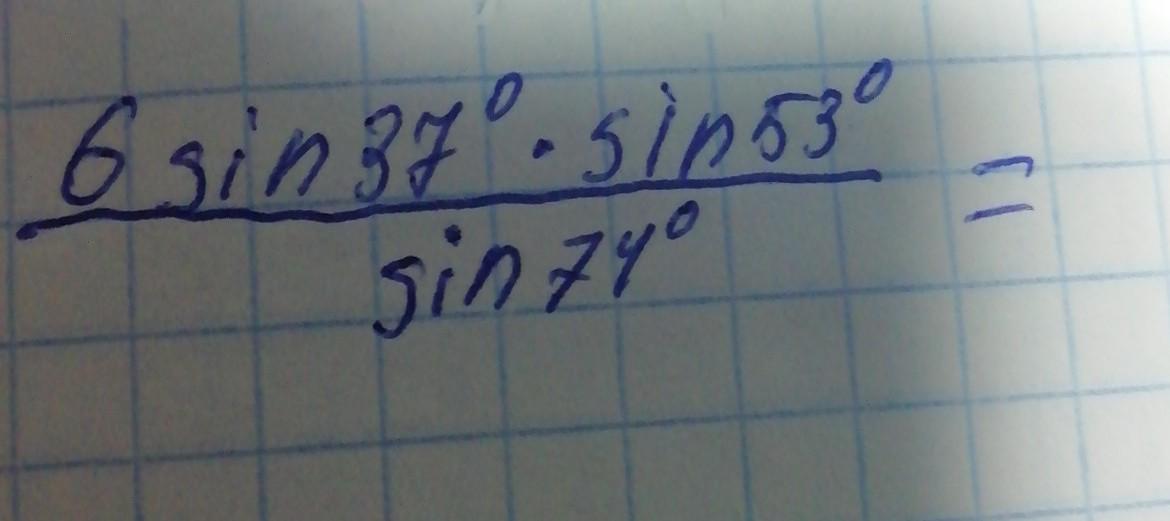 6 sin 37° · sin 53°
sin 74°
=